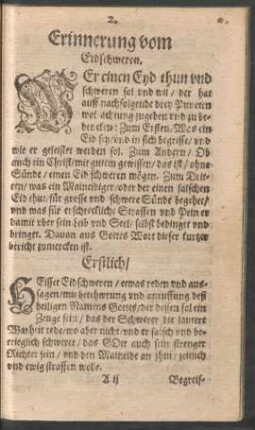 2.
Erinnerung vom
Eidschweren.
WEr einen Eyd thun vnd
schweren sol vnd wil / der hat
auff nachfolgende drey Puncten
wol achtung zugeben vnd zu be-
dencken: Zum Ersten, Was ein
Eid sey / vnd in sich begriffe / vnd
wie er geleistet werden sol. Zum Andern / Ob
auch ein Christ / mit gutem gewissen / das ist / ohne
Sünde / einen Eid schweren mögen. Zum Drit-
ten / was ein Maineidiger / oder der einen falschen
Eid thut / für grosse vnd schwere Sünde begehet /
vnd was für erschreckliche Straffen vnd Pein er
damit vber sein leib vnd Seel / selbst bedinget vnd
bringet. Dauon aus Gottes Wort dieser kurtzer
bericht zumercken ist.
Erstlich /
HEisset Eidschweren / etwas reden vnd aus-
sagen / mit berührung vnd anruffung deß
heiligen Namens Gottes / der dessen sol ein
Zeuge sein / das der Schwerer die lautere
Warheit rede / wo aber nicht / vnd er falsch vnd be-
trieglich schweret / das GOtt auch sein strenger
Richter sein / vnd den Maineide an jhm / zeitlich
vnd ewig straffen wolle.
A ij Begreif-